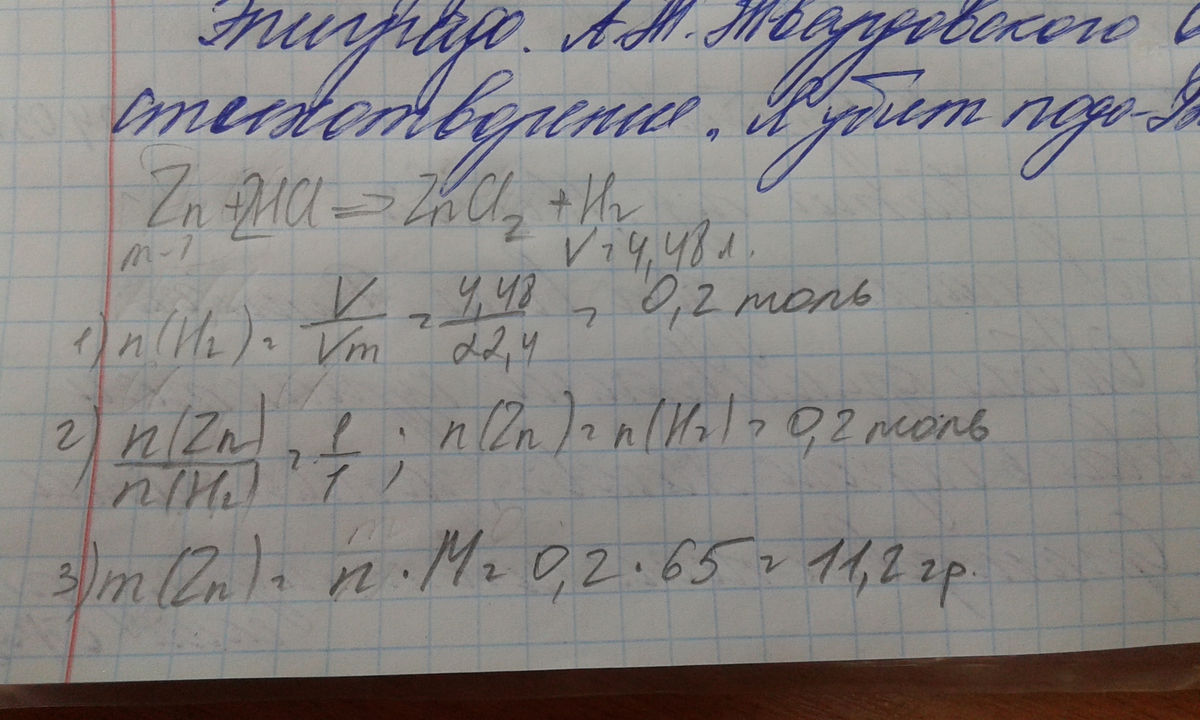 Эпиграф. А.Т. Твардовского
стихотворение „Я убит подо-
Zn + 2HCl => ZnCl₂ + H₂
m-? V=4,48 л.
1) n(H₂) = V/Vm = 4,48/22,4 = 0,2 моль
2) n(Zn)/n(H₂) = 1/1 ; n(Zn) = n(H₂) = 0,2 моль
3) m(Zn) = n · M = 0,2 · 65 = 11,2 гр.